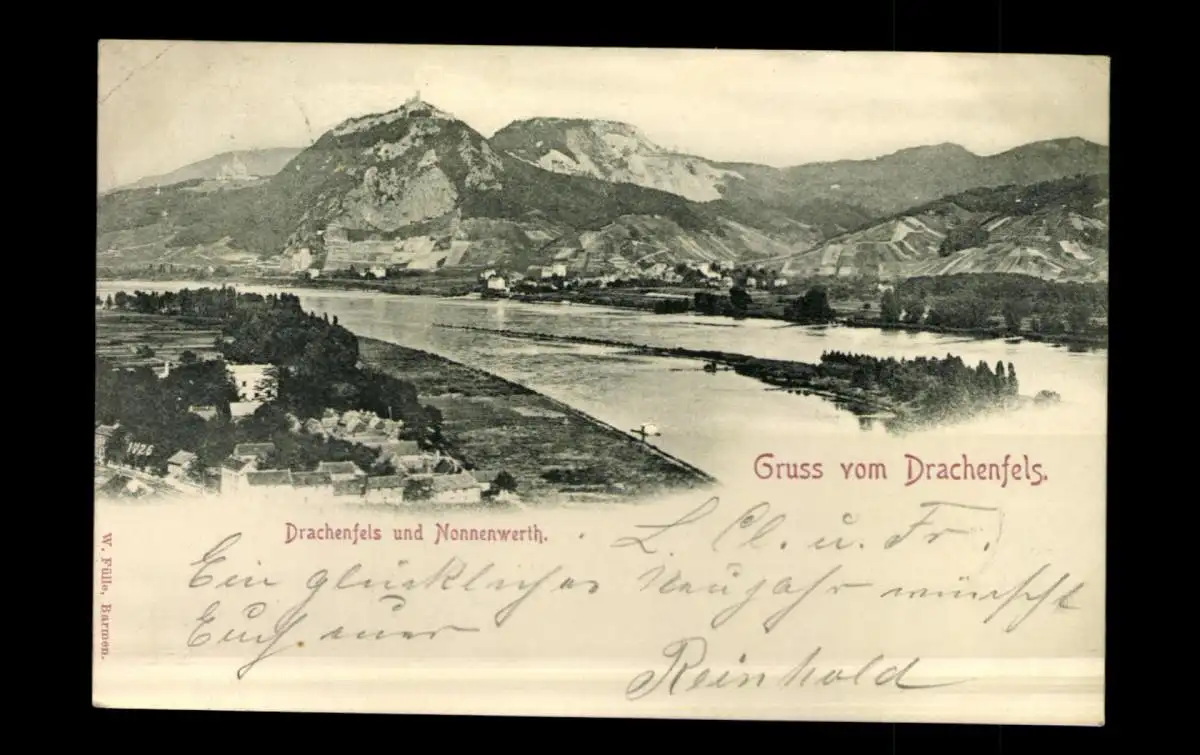 1426
Gruss vom Drachenfels.
Drachenfels und Nonnenwerth.
W. Fülle, Barmen.
L. Cl. u. Fr.
Ein glückliches Neujahr wünscht
Euch euer
Reinhold